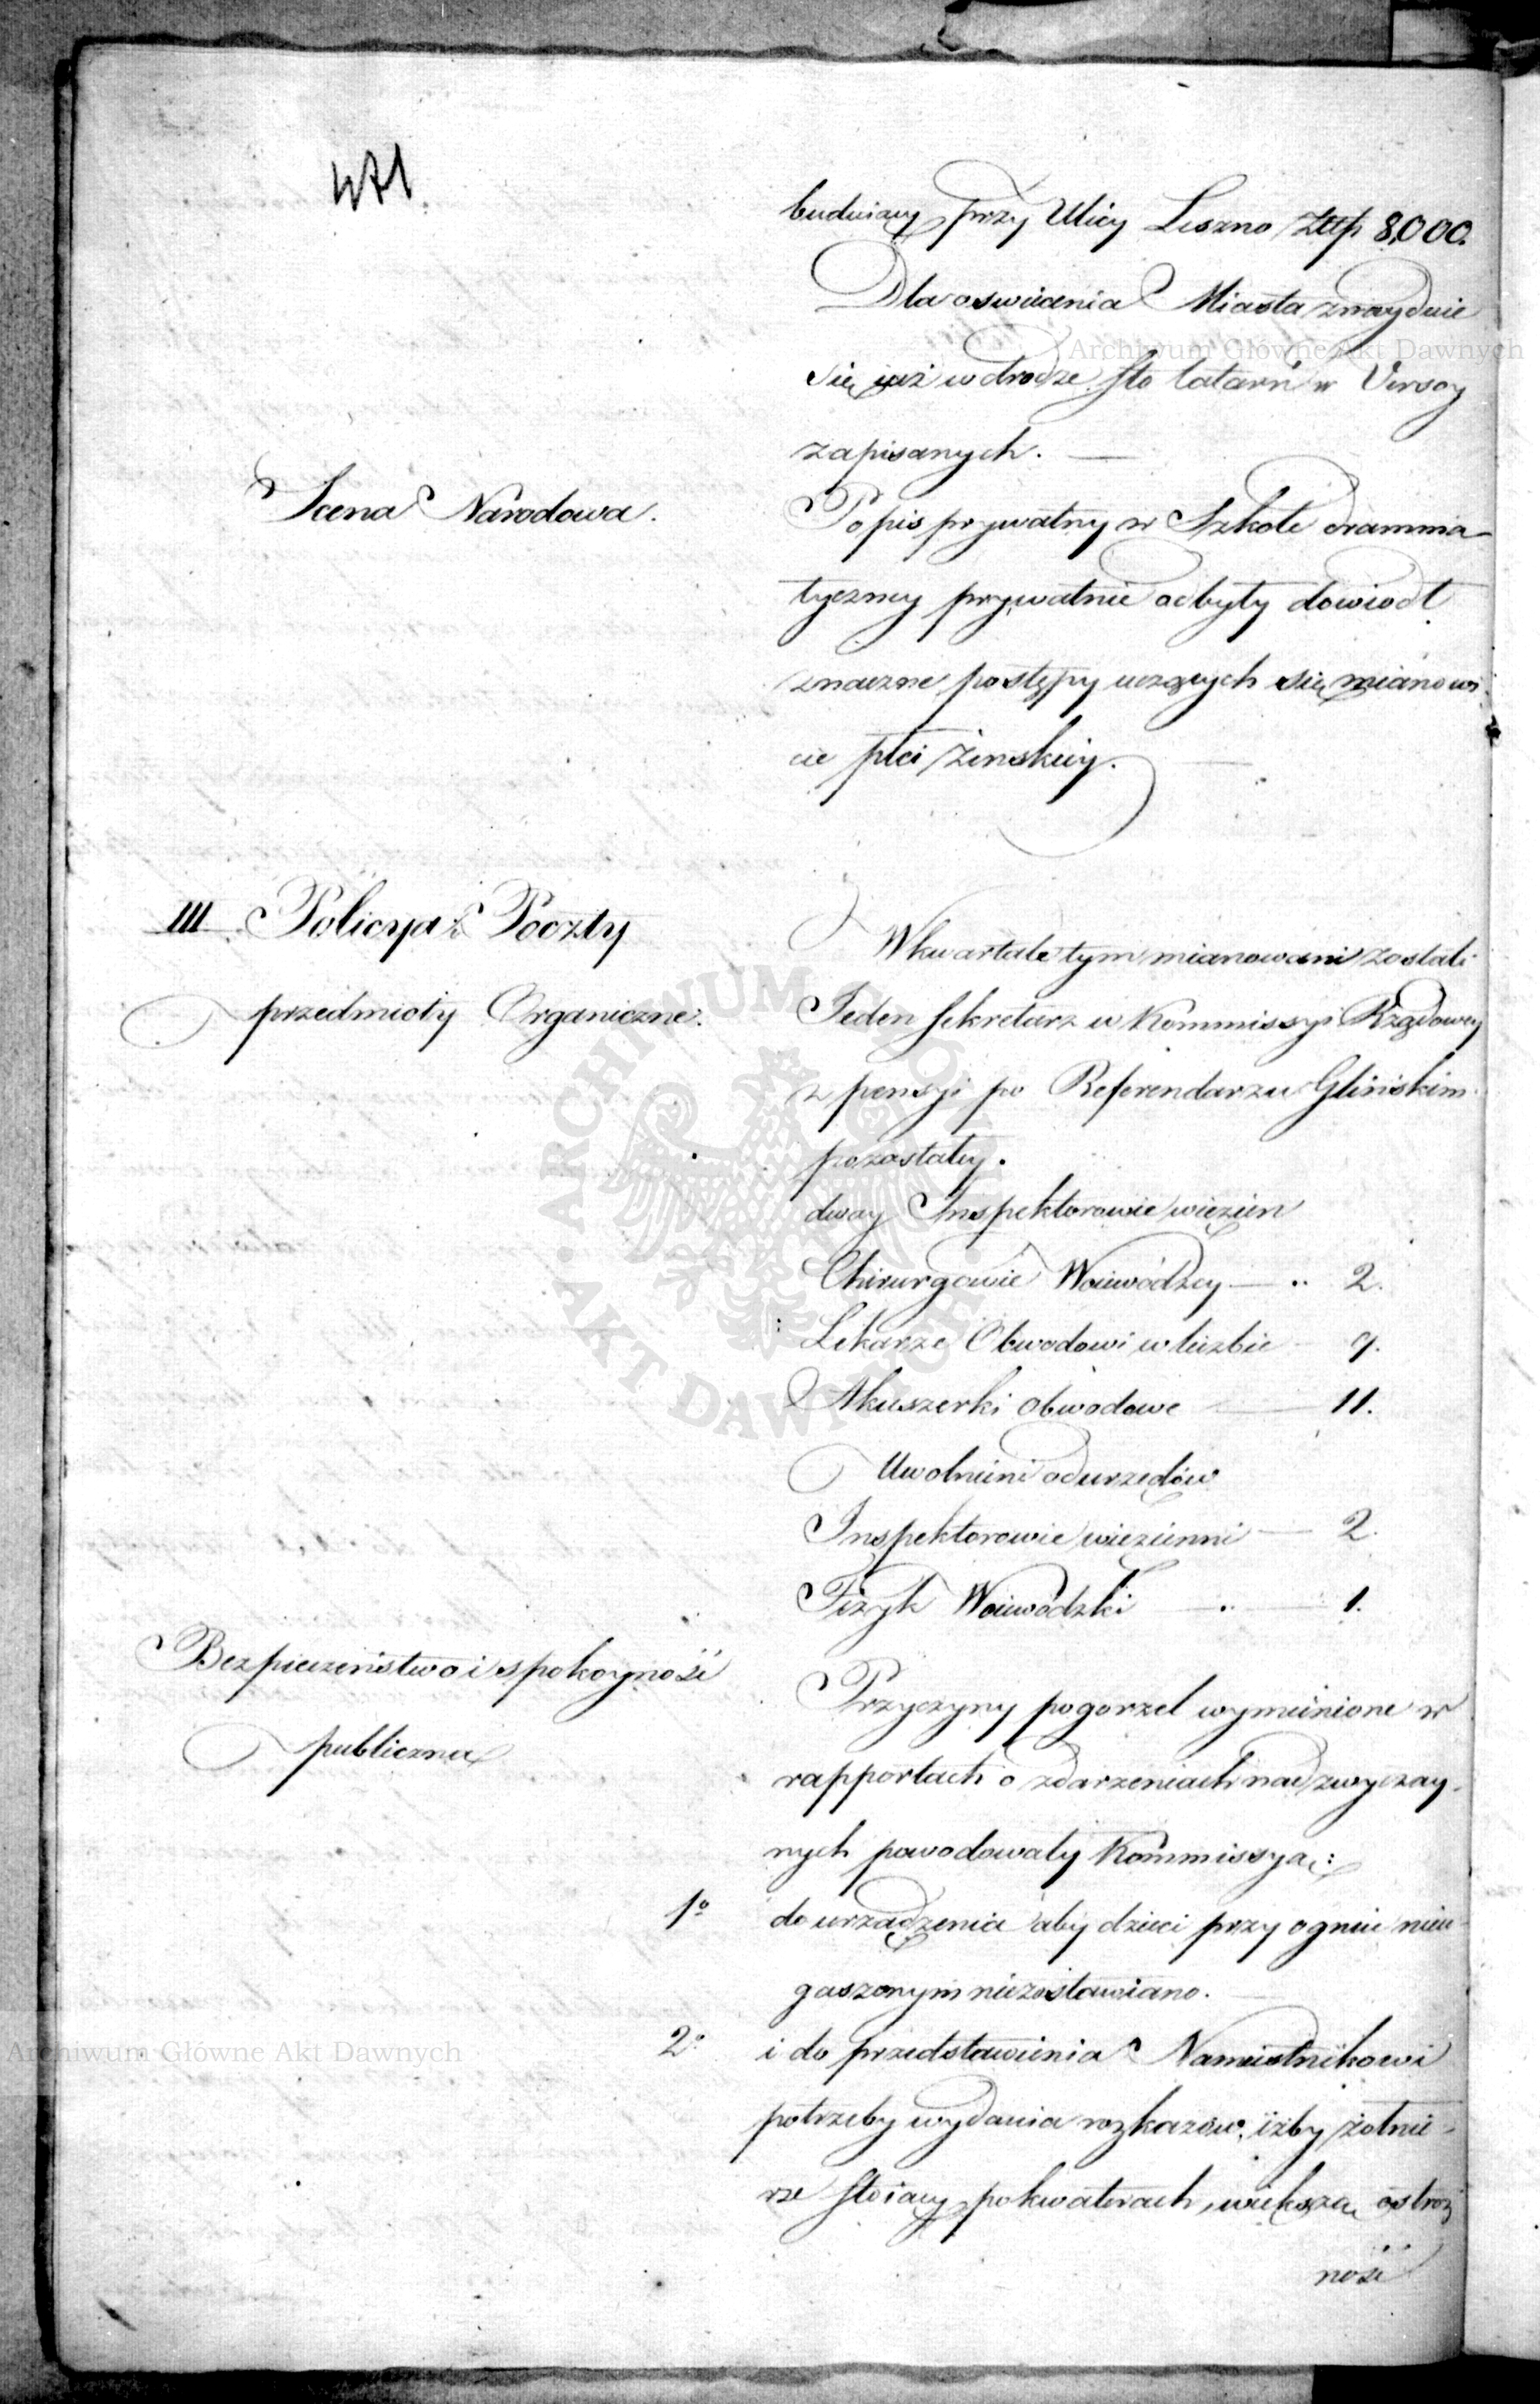 471
budniczy przy Ulicy Leszno Złłp 8,000.
Dla oswiecenia Miasta znayduie
się iuż w drodze sto latarń w Versoy
zapisanych. —
Scena Narodowa.
Popis prywatny w Szkole dramma-
tyczney prywatnie odbyty dowiodł
znaczne postępy uczących się mianowi
cie płci żenskiey.
III Policya i Poczty
przedmioty Organiczne.
W kwartale tym mianowani zostali
Jeden sekretarz w Kommissyi Rządowey
z pensyi po Referendarzu Glińskim
pozostałey.
dway Inspektorowie więzien
Chirurgowie Woiewódzcy — .. 2.
Lekarze Obwodowi w liczbie 9.
Akuszerki obwodowe — 11.
Uwolnieni od urzędów
Inspektorowie więzienni — 2.
Fizyk Woiewódzki — .. — 1.
Bezpieczeństwo i spokoyność
publiczna
Przyczyny pogorzel wymienione w
rapportach o zdarzeniach nadzwyczay-
nych powodowały Kommissyą:
1º do urządzenia aby dzieci przy ogniu nieu-
gaszonym niezostawiano. —
2º i do przedstawienia Namiestnikowi
potrzeby wydania rozkazów, iżby żołnie-
rze stoiący po kwaterach, większą ostroż
ność
Archiwum Główne Akt Dawnych
Archiwum Główne Akt Dawnych